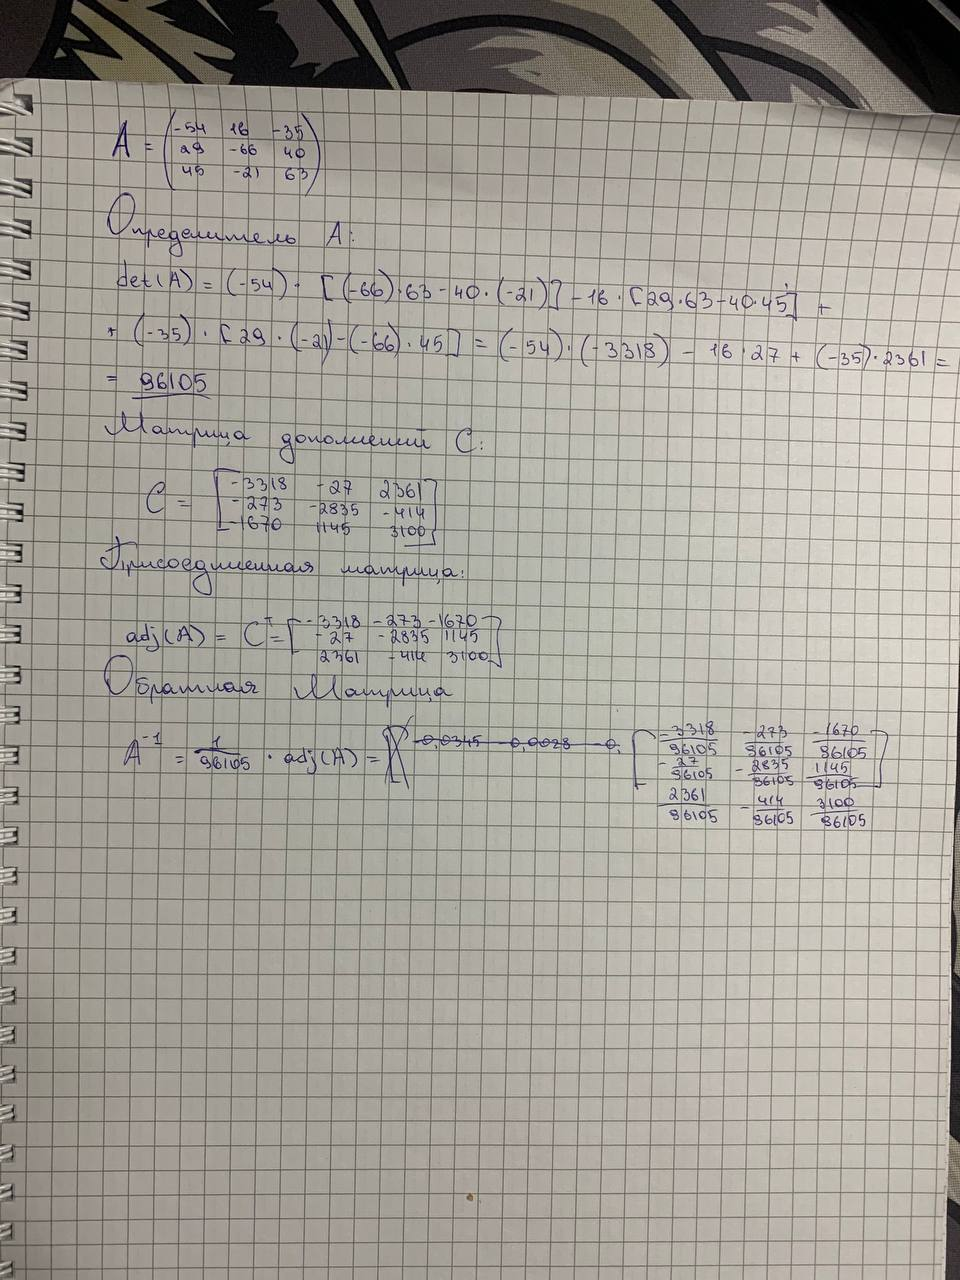 A = (-54 16 -35
29 -66 40
45 -21 63)
Определитель A:
det(A) = (-54) · [(-66)·63-40·(-21)] - 16·[29·63-40·45] +
+ (-35)·[29·(-21)-(-66)·45] = (-54)·(-3318) - 16·27 + (-35)·2361 =
= 96105
Матрица дополнений C:
C = [-3318 -27 2361
-273 -2835 -414
-1670 1145 3100]
Присоединенная матрица:
adj(A) = C^T = [-3318 -273 -1670
-27 -2835 1145
2361 -414 3100]
Обратная Матрица
A^-1 = 1/96105 · adj(A) = [-3318/96105 -273/96105 -1670/96105
-27/96105 -2835/96105 1145/96105
2361/96105 -414/96105 3100/96105]